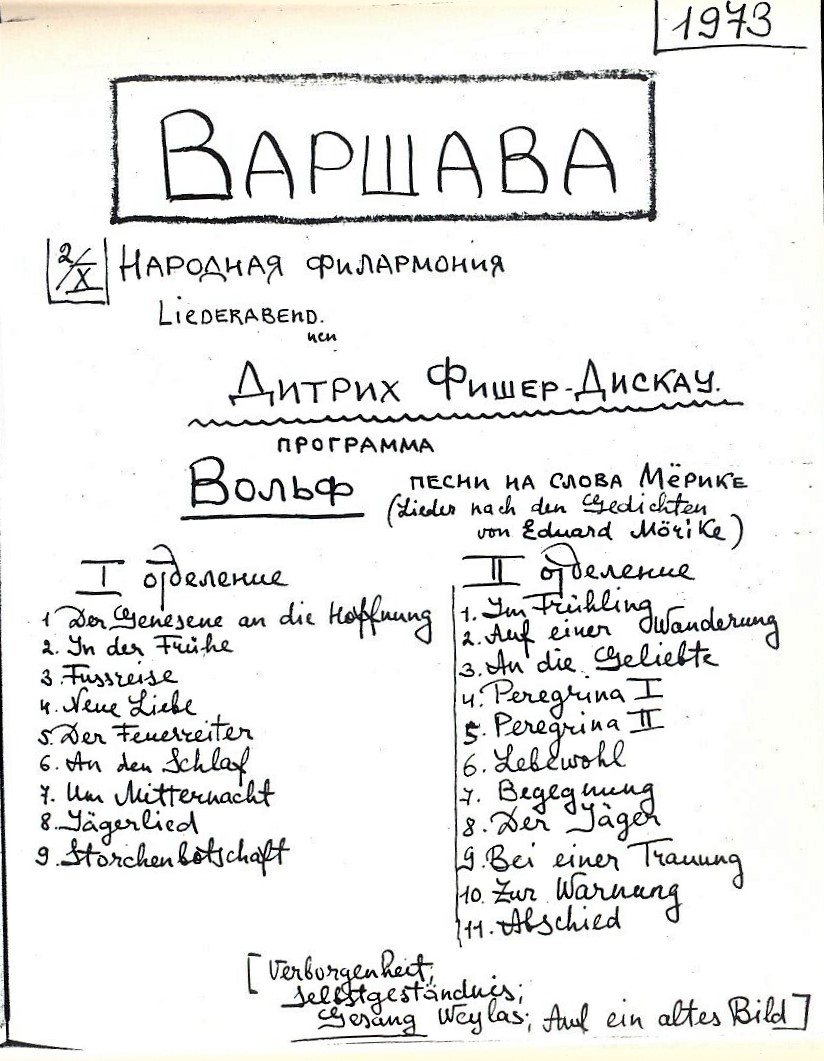 1973
ВАРШАВА
2/X НАРОДНАЯ ФИЛАРМОНИЯ
LIEDERABEND.
исп
ДИТРИХ ФИШЕР-ДИСКАУ.
ПРОГРАММА
ВОЛЬФ ПЕСНИ НА СЛОВА МЁРИКЕ
(Lieder nach den Gedichten
von Eduard Mörike)
I отделение
1 Der Genesene an die Hoffnung
2. In der Frühe
3. Fussreise
4. Neue Liebe
5. Der Feuerreiter
6. An den Schlaf
7. Um Mitternacht
8. Jägerlied
9. Storchenbotschaft
II отделение
1. Im Frühling
2. Auf einer Wanderung
3. An die Geliebte
4. Peregrina I
5. Peregrina II
6. Lebewohl
7. Begegnung
8. Der Jäger
9. Bei einer Trauung
10. Zur Warnung
11. Abschied
[Verborgenheit;
Selbstgeständnis;
Gesang Weylas; Auf ein altes Bild]